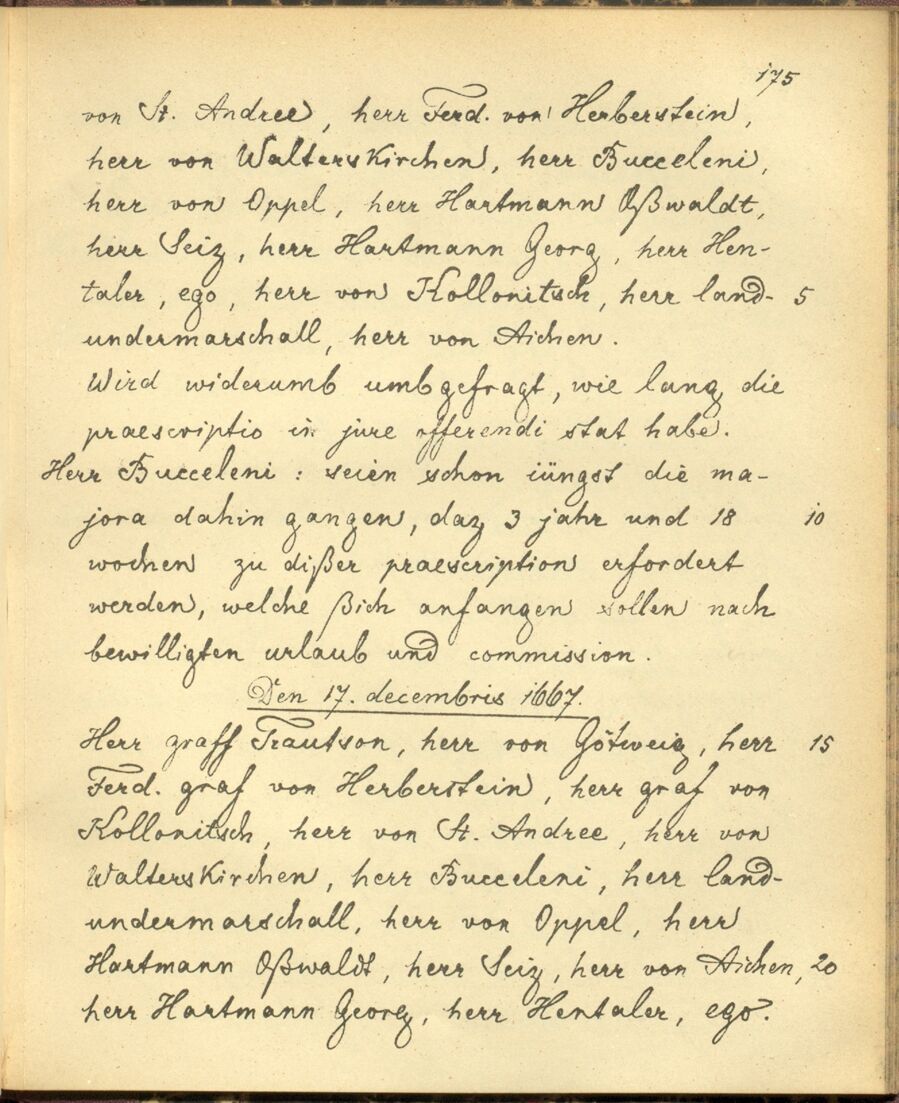 175
von St. Andree, herr Ferd. von Herberstein,
herr von Walterskirchen, herr Bucceleni,
herr von Oppel, herr Hartmann Oßwaldt,
herr Seiz, herr Hartmann Georg, herr Hen-
taler, ego, herr von Kollonitsch, herr land- 5
undermarschall, herr von Aichen.
Wird widerumb umbgefragt, wie lang die
praescriptio in jure offerendi stat habe.
Herr Bucceleni: seien schon iüngst die ma-
jora dahin gangen, daz 3 jahr und 18 10
wochen zu dißer praescription erfordert
werden, welche ßich anfangen sollen nach
bewilligten urlaub und commission.
Den 17. decembris 1667.
Herr graff Trautson, herr von Götweig, herr 15
Ferd. graf von Herberstein, herr graf von
Kollonitsch, herr von St. Andree, herr von
Walterskirchen, herr Bucceleni, herr land-
undermarschall, herr von Oppel, herr
Hartmann Oßwaldt, herr Seiz, herr von Aichen, 20
herr Hartmann Georg, herr Hentaler, ego.